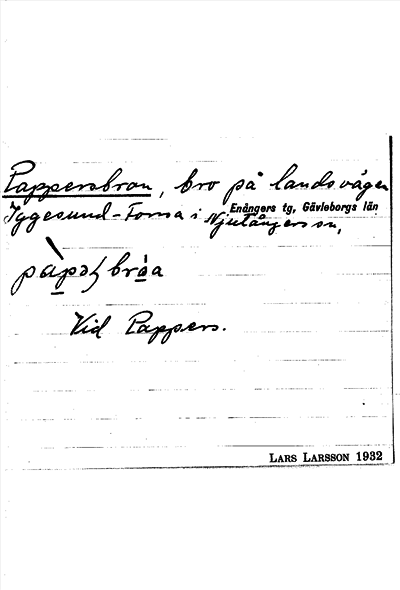 Pappersbron, bro på landsvägen
Iggesund-Forsa i Njutångers sn,
Enångers tg, Gävleborgs län
Vid Pappers.
LARS LARSSON 1932